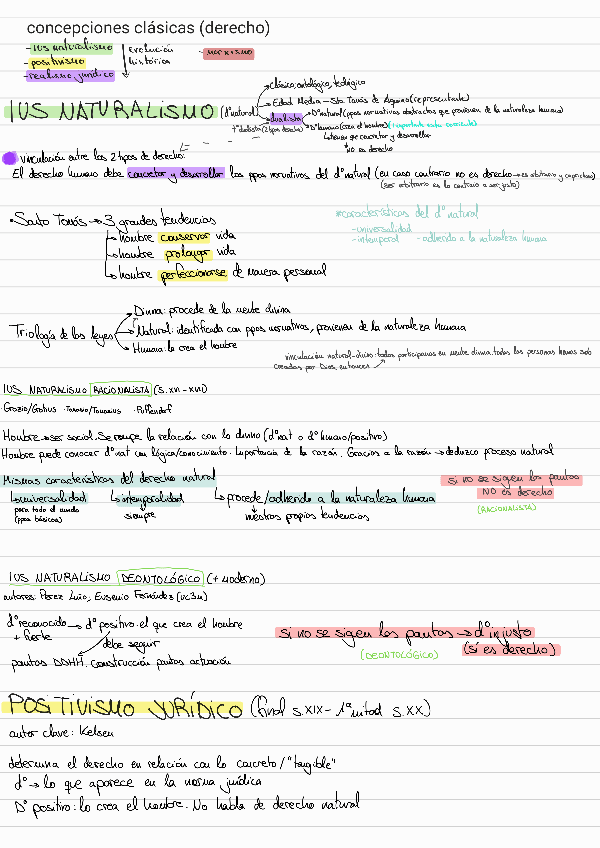 concepciones clásicas (derecho)
- IUS naturalismo
- positivismo
- realismo jurídico
evolución
histórica
- marxismo
IUS NATURALISMO (dºnatural
Clásico: ontológico, teológico
Edad Media - Sto. Tomás de Aquino (representante)
dualista
+ dualista (2 tipos derecho)
Dº natural (ppos normativos abstractos que provienen de la naturaleza humana)
Dº humano (crea el hombre)
tiene que concretar y desarrollar
no es derecho
vinculación entre los 2 tipos de derecho:
El derecho humano debe concretar y desarrollar los ppos normativos del dº natural (en caso contrario no es derecho → es arbitrario y caprichoso)
(ser arbitrario es lo contrario a ser justo)
• Santo Tomás → 3 grandes tendencias
hombre conservar vida
hombre prolongar vida
hombre perfeccionarse de manera personal
*características del dº natural
- universalidad
- intemporal - adherido a la naturaleza humana
Triología de las leyes
Divina: procede de la mente divina
Natural: identificada con ppos normativos, provienen de la naturaleza humana
Humana: la crea el hombre
vinculación natural-divino: todos participamos en mente divina, todas las personas hemos sido
creadas por Dios, entonces
IUS NATURALISMO RACIONALISTA (s. XVI - XVII)
· Grozio/Grotius · Tomasio/Tomasius · Puffendorf
Hombre → ser social. Se rompe la relación con lo divino (dº nat o dº humano/positivo)
Hombre puede conocer dº nat con lógica/conocimiento. Importancia de la razón. Gracias a la razón → deduzco proceso natural
Mismas características del derecho natural
universalidad
para todo el mundo
(ppos básicos)
intemporalidad
siempre
procede/adherido a la naturaleza humana
nuestras propias tendencias
si no se sigen las pautas
NO es derecho
(RACIONALISTA)
IUS NATURALISMO DEONTOLÓGICO (+ moderno)
autores: Pérez Luño, Eusebio Fernández (UC3M)
dº reconocido → dº positivo: el que crea el hombre
+ fuerte
debe seguir
pautas DDHH. Construcción pautas actuación
si no se sigen las pautas → dº injusto
(DEONTOLÓGICO)
(sí es derecho)
POSITIVISMO JURÍDICO (final s. XIX - 1ª mitad s. XX)
autor clave: Kelsen
determina el derecho en relación con lo concreto / "tangible"
dº → lo que aparece en la norma jurídica
Dº positivo: lo crea el hombre. No habla de derecho natural